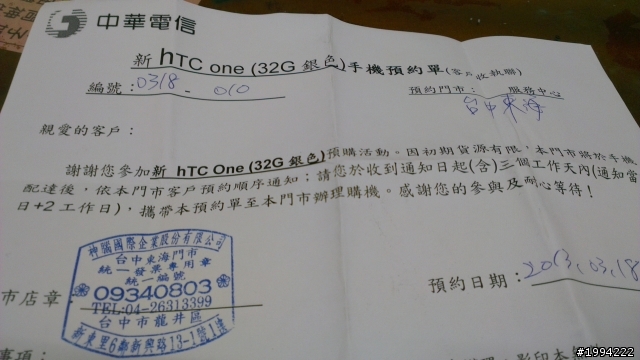 中華電信
新 hTC one (32G 銀色)手機預約單(客戶收執聯)
編號：0318 - 010
預約門市： 服務中心
台中東海
親愛的客戶：
謝謝您參加新 hTC One (32G 銀色)預購活動。因初期貨源有限，本門市將於手機
配達後，依本門市客戶預約順序通知；請您於收到通知日起(含)三個工作天內(通知當
日+2 工作日)，攜帶本預約單至本門市辦理購機。感謝您的參與及耐心等待！
神腦國際企業股份有限公司
台中東海門市
統一發票專用章
統一編號
09340803
TEL:04-26313399
台中市龍井區
新東里6鄰新興路13-1號1樓
市店章：
預約日期：2013.03.18
事項：
#1994222